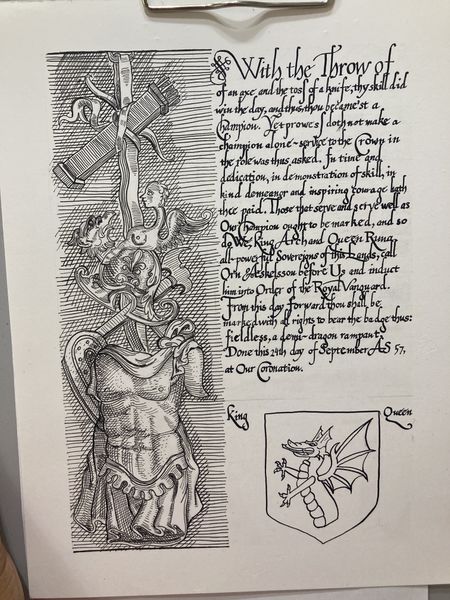 With the Throw of
of an axe and the toss of a knife, thy skill did
win the day, and thus, thou became'st a
Champion. Yet prowess doth not make a
champion alone - service to the Crown in
the role was thus asked. In time and
dedication, in demonstration of skill, in
kind demeanor and inspiring courage hath
thee paid. Those that serve and serve well as
Our Champion ought to be marked, and so
do We, King Arch and Queen Runa,
all-powerful Sovereigns of this Lands, call
Orn Heskelsson before Us and induct
him into Order of the Royal Vanguard.
From this day forward thou shall be
marked with all rights to bear the badge thus:
fieldless, a demi-dragon rampant.
Done this 24th day of September AS 57,
at Our Coronation.
King
Queen